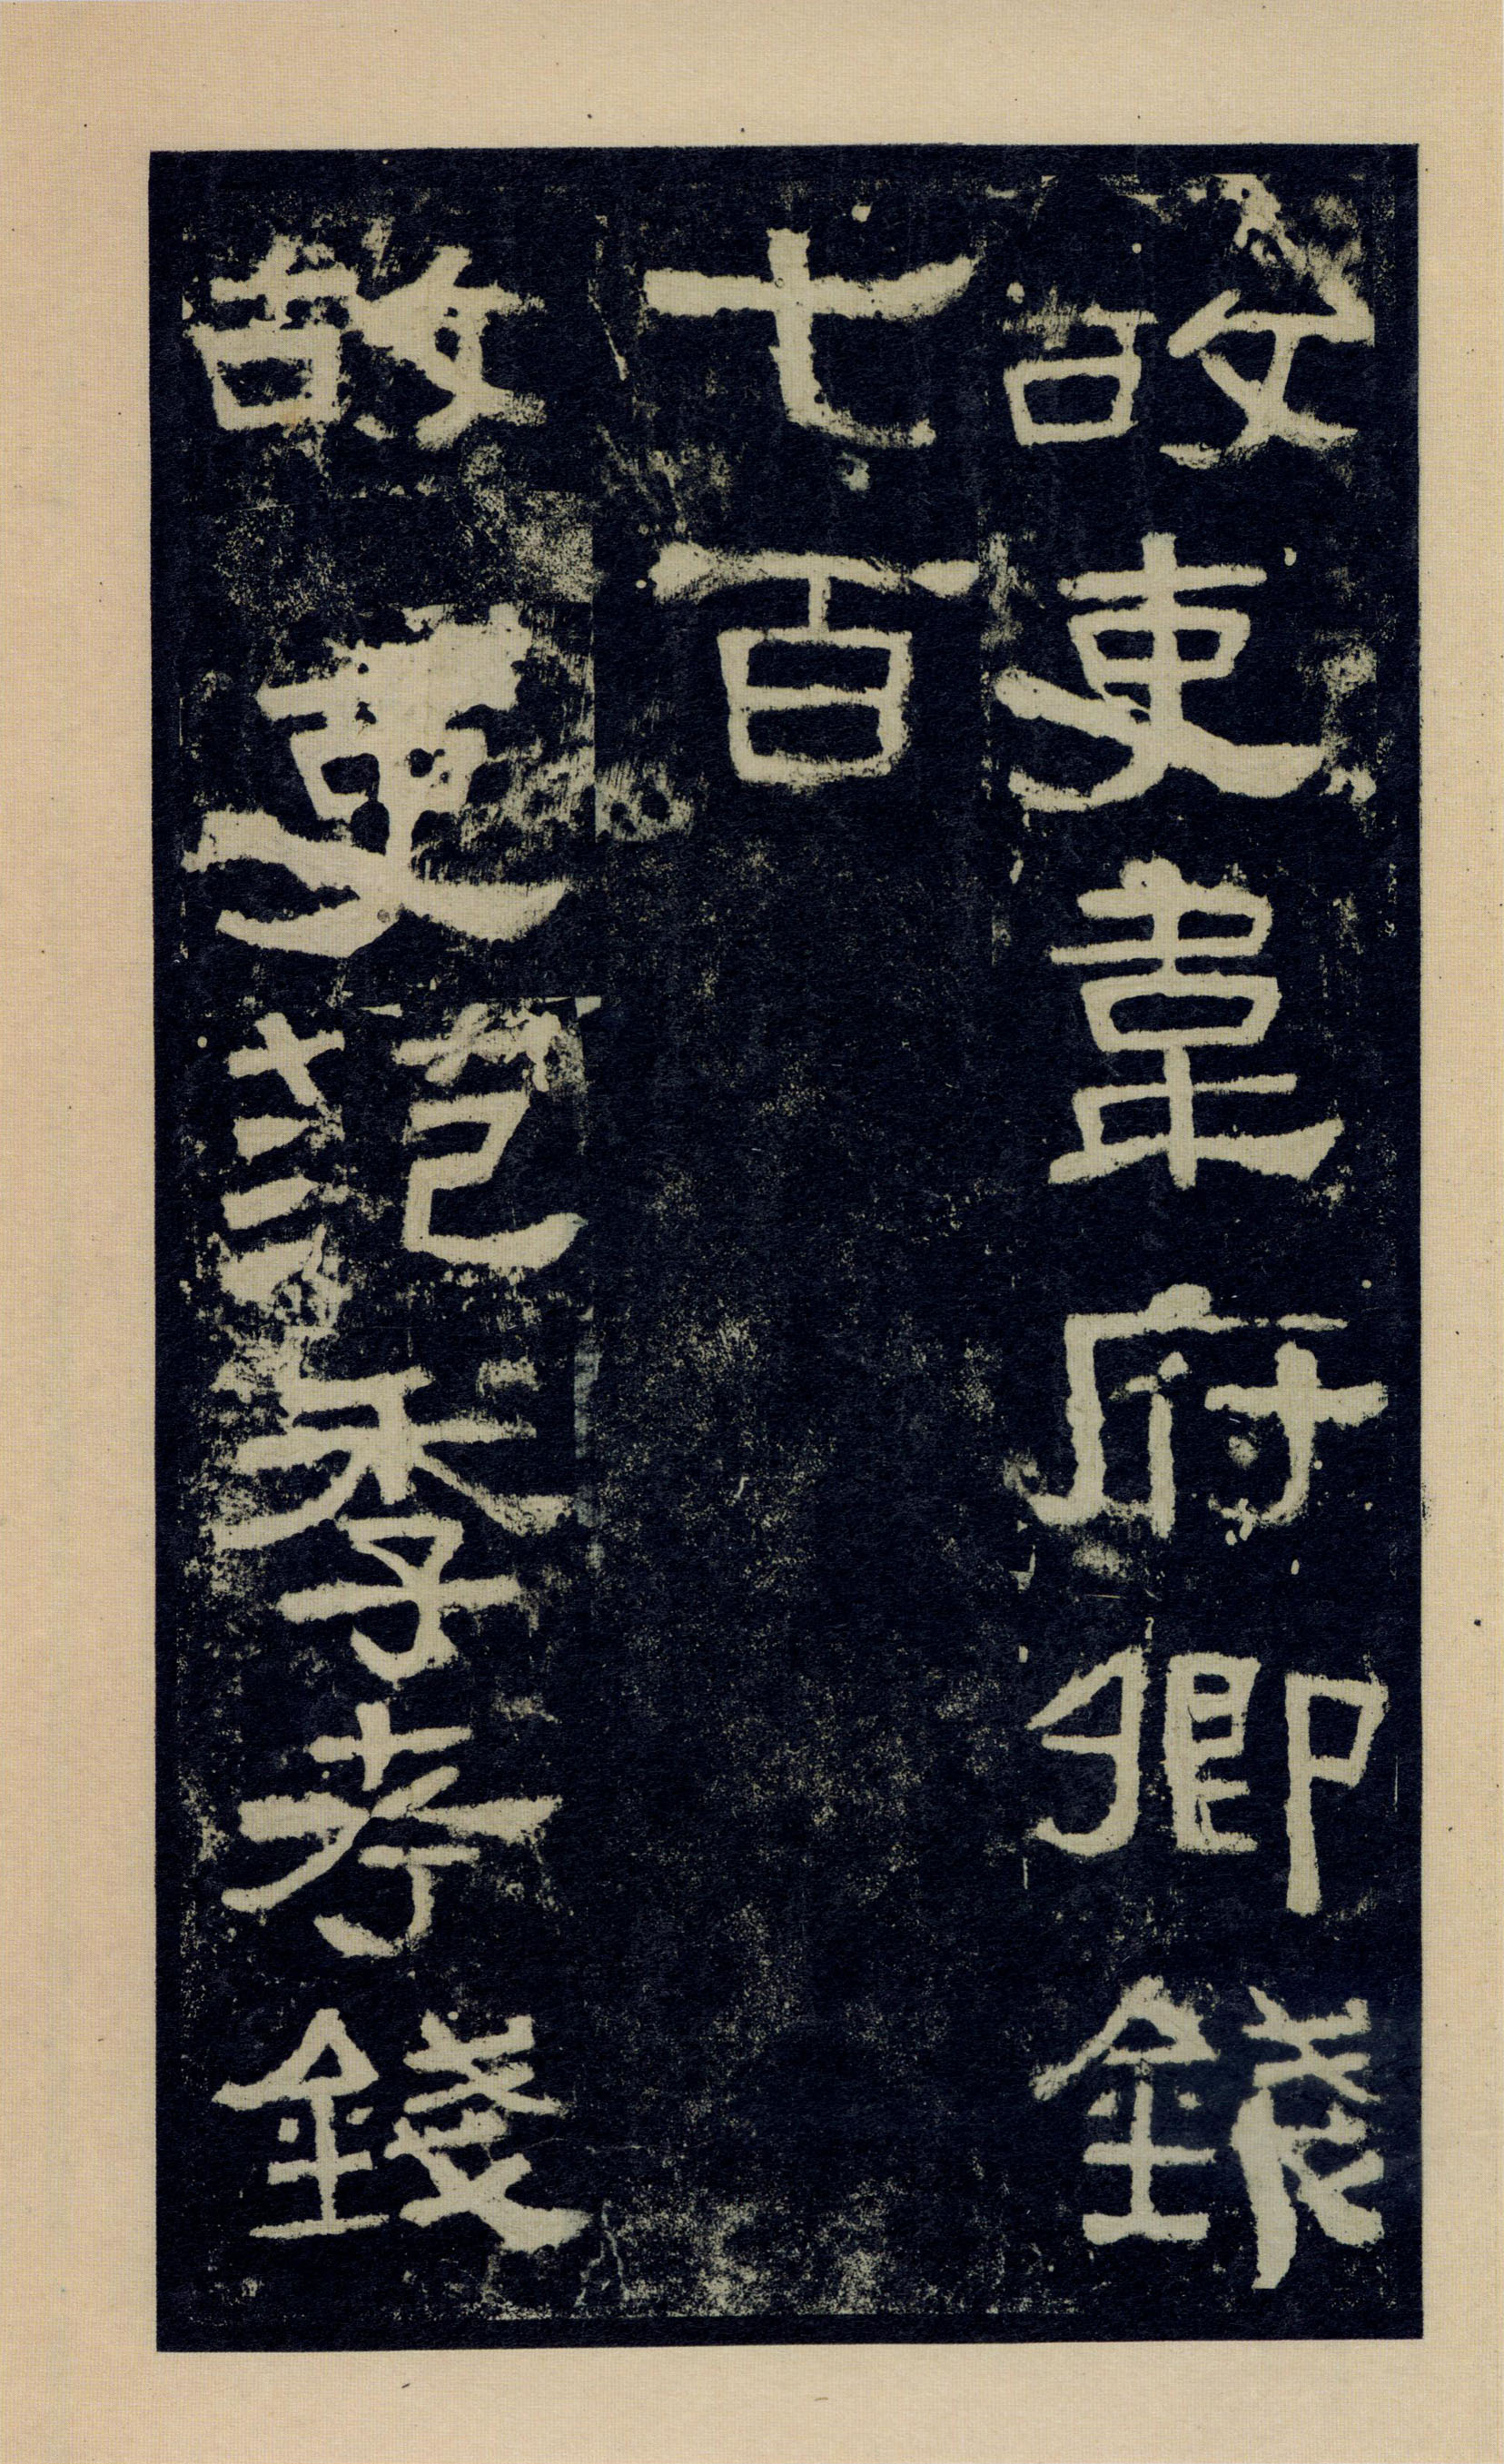 故吏韋府卿錢
七百
故吏范季考錢